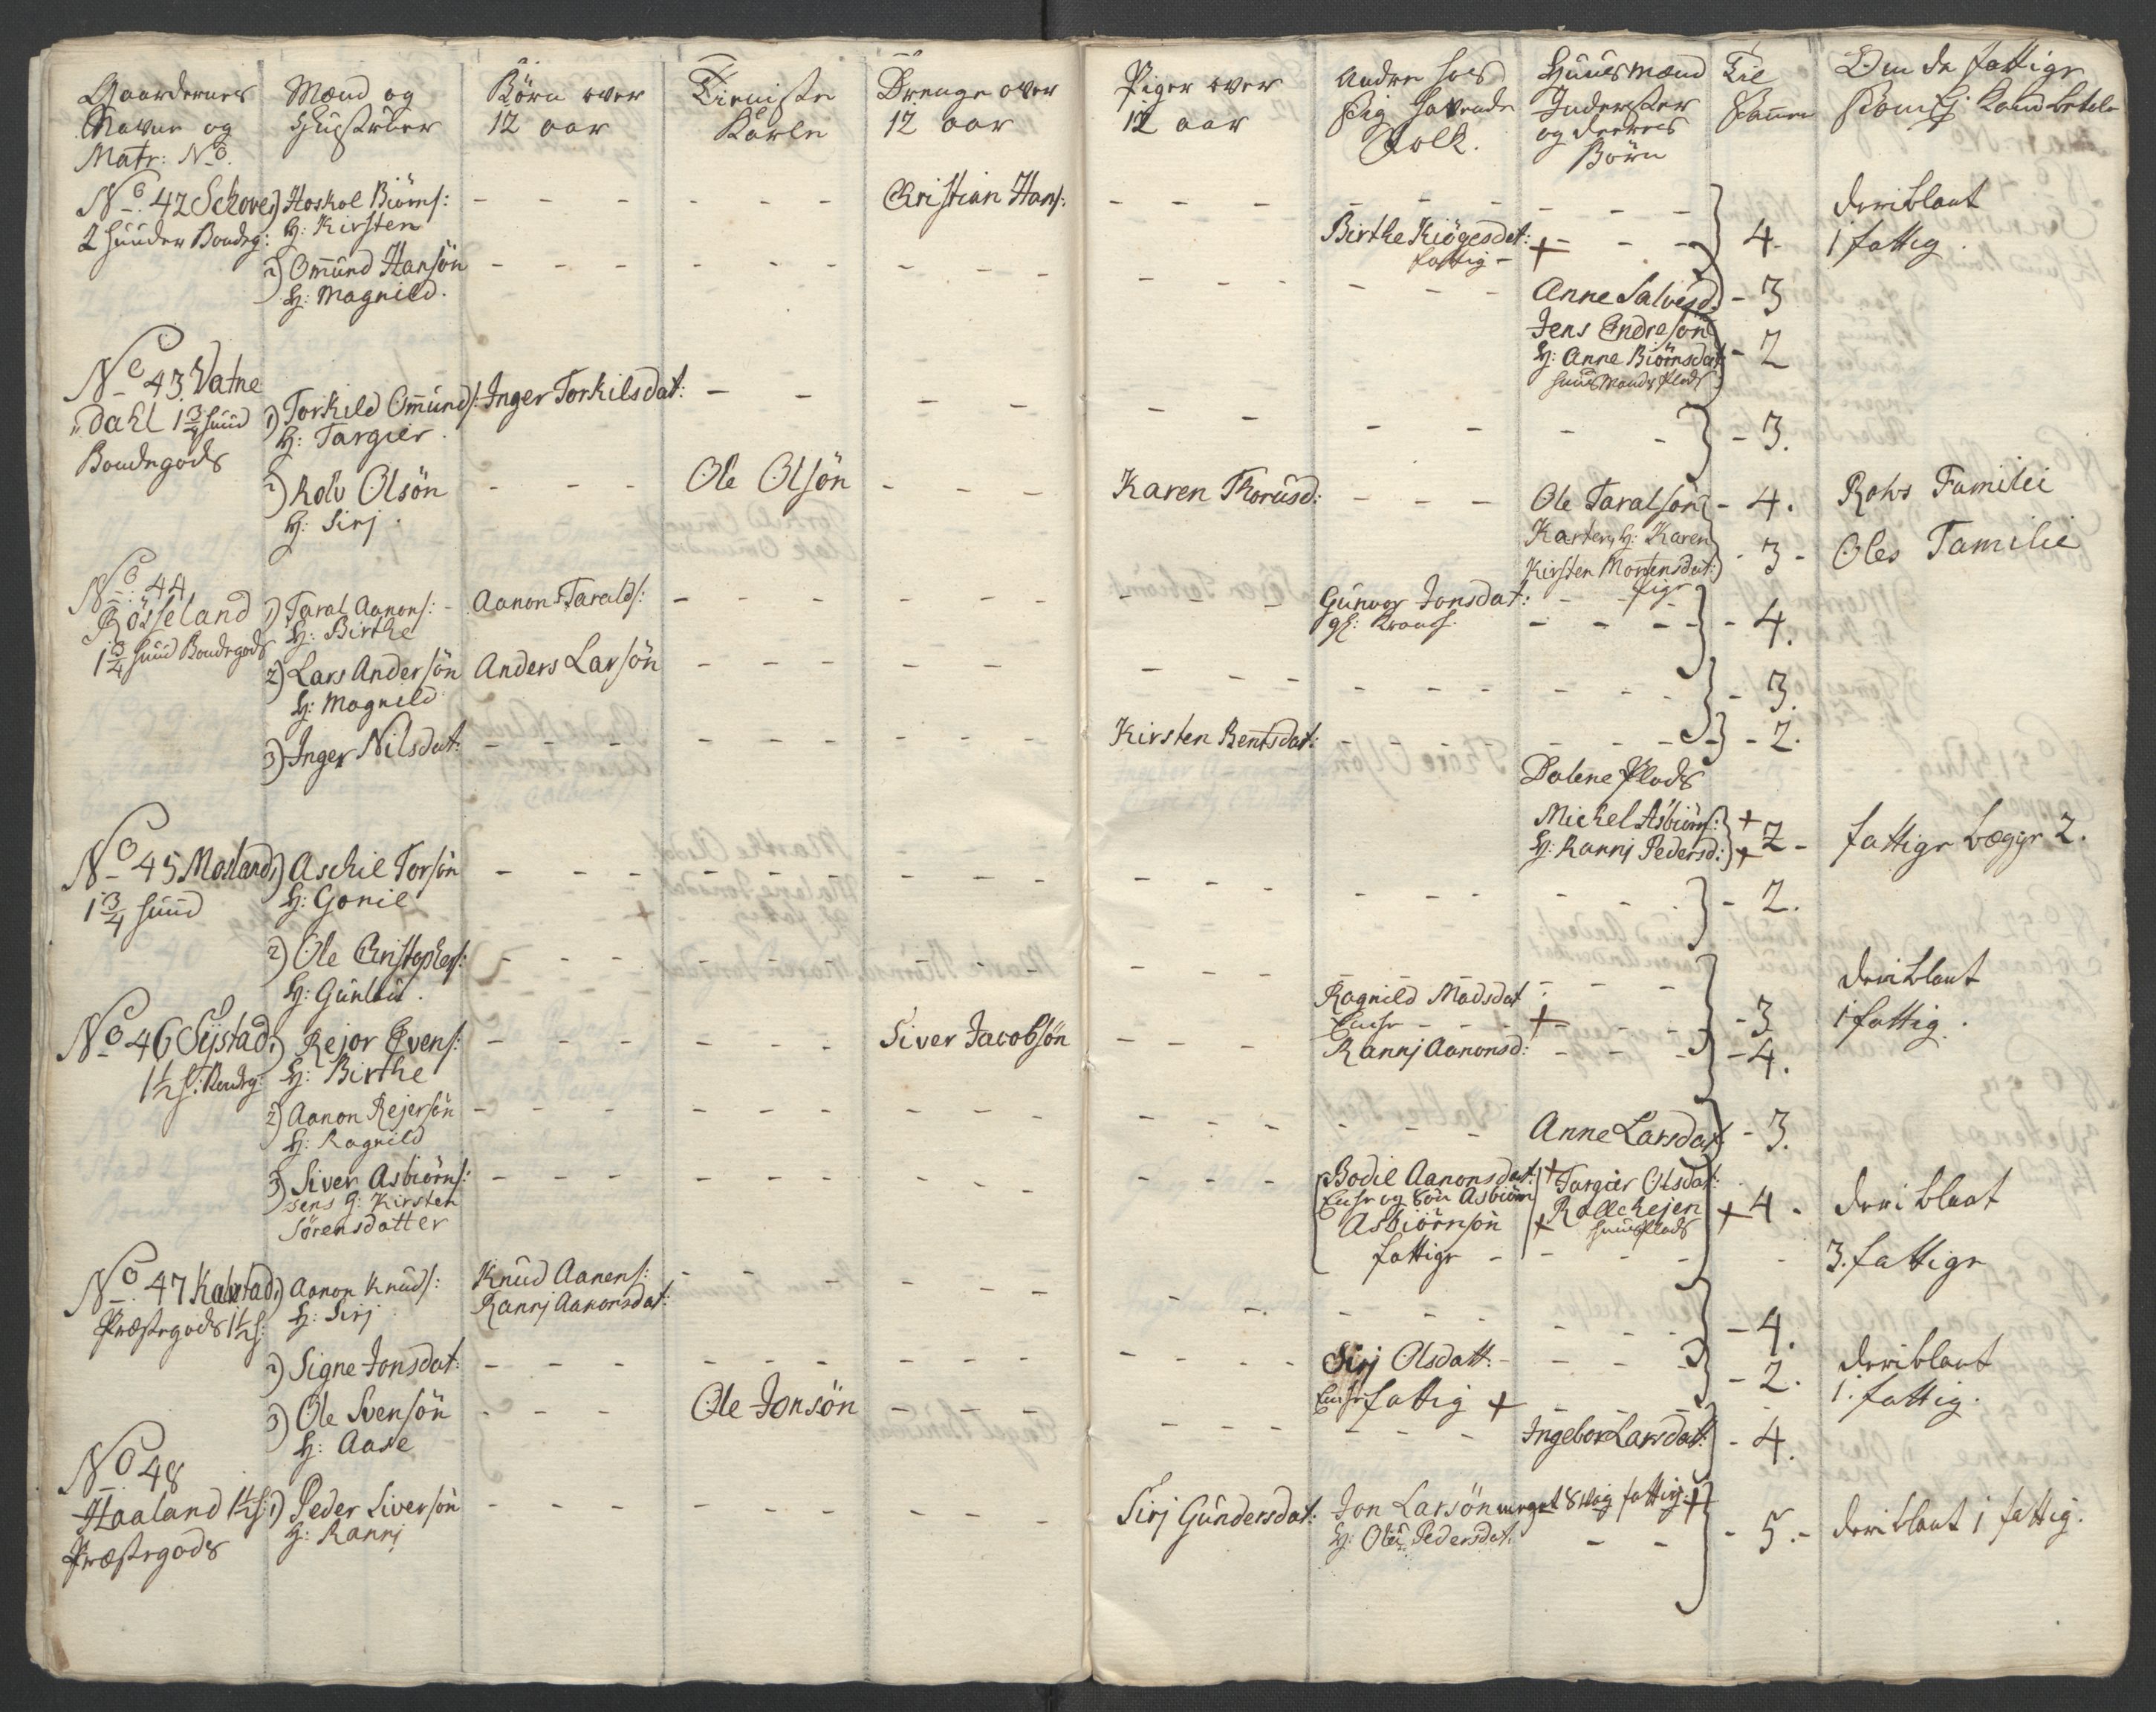 Gaardernes Navne og Matr: No.
Mænd og Hustruer
Börn over 12 aar
Tieniste Karle
Drenge over 12 aar
Piger over 12 aar
Andre hos sig havende Folk.
Huusmænd Inderster og deres Börn
Til Sammen
Om de fattige
No. 42 Schove
2 huuder Bondeg:
1) Hoskol Biörns:
H: Kirsten
Christian Hans:
Birthe Kiögesdat:
fattig - +
4.
deriblant
1 fattig.
2) Omund Hansön
H: Magnild.
Anne Salvesd: - 3
Jens Endresön
H: Anne Biörnsdat: - 2
huusmands Plads
No. 43 Vatne
dahl 1 3/4 huud
Bondegods
1) Torkild Omunds:
H: Targier.
Inger Torkilsdat:
- 3.
2) Rolv Olsön
H: Sirj.
Ole Olsön
Karen Thorusd:
Ole Taralsön - 4.
Rolvs Familie
H: Karen
Kirsten Mortensdat: - 3 -
Oles Familie
No. 44
Rösseland
1 3/4 huud Bondegods
1) Taral Aanons:
H: Birthe
Aanon Tarals:
Gunvor Jonsdat:
- 4.
2) Lars Andersön
H: Magnild
Anders Larsön
- 3.
3) Inger Nilsdat:
Kirsten Bentsdat:
- 2.
Dalene Plads
Michel Asbiörns: +
H: Rannj Pedersd: + 2 -
fattige begge 2.
No. 45 Mosland
1 3/4 huud
1) Aschil Torsön
H: Gonil
- 2.
2) Ole Christophers:
H: Gunlou.
Ragnild Madsdat
Enke - - - +
- 3
deriblant
1 fattig.
No. 46 Systad
1 1/2 h: Bondeg:
1) Rejor Evens:
H: Birthe
Siver Jacobsön
Rannj Aanonsd:
- 4.
2) Aanon Rejersön
H: Ragnild
Anne Larsdat - 3.
3) Siver Asbiörns:
sens H: Kirsten
Sörensdatter
Bodil Aanonsdat: +
Enke og Sön Asbiörn
Asbiörnsön +
fattige -
Targier Olsdat:
huusPlads
+ 4 -
deriblant
3. fattige
No. 47 Kalstad
Præstegods 1 1/2 h:
1) Aanon Knuds:
H: Sirj
Knud Aanens:
Rannj Aanonsdat:
- 4.
2) Signe Jonsdat:
Sirj Olsdatt:
Enke fattig +
- 2.
deriblant
1. fattig.
3) Ole Svensön
H: Aase
Ole Jonsön
Ingebor Larsdatt: - 4.
No 48
Haaland 1 1/2 h:
Præstegods
1) Peder Siversön
H: Rannj
Sirj Gundersdat:
Jon Larsön meget svag fattig: +
Pedersdat:
- 5. -
deriblant 1 fattig.